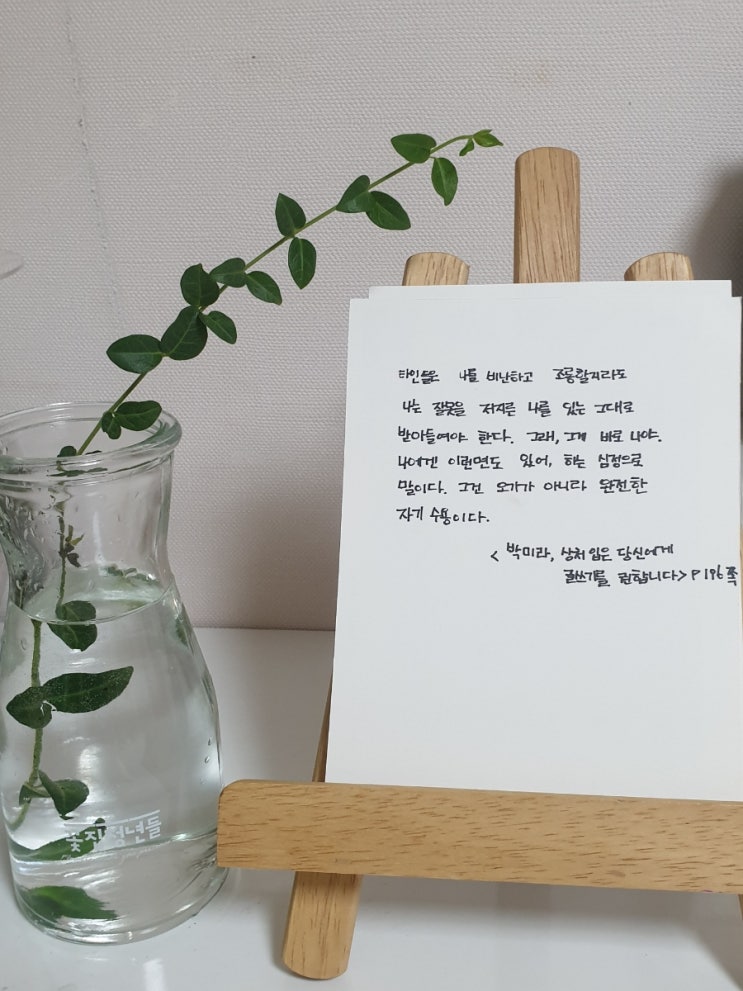 타인들은 나를 비난하고 조롱할지라도
나는 잘못을 저지른 나를 있는 그대로
받아들여야 한다. 그래, 그게 바로 나야.
나에겐 이런면도 있어, 하는 심정으로
말이다. 그건 오기가 아니라 완전한
자기 수용이다.
< 박미라, 상처 입은 당신에게
글쓰기를 권합니다> P 196 쪽
꽃집청년들